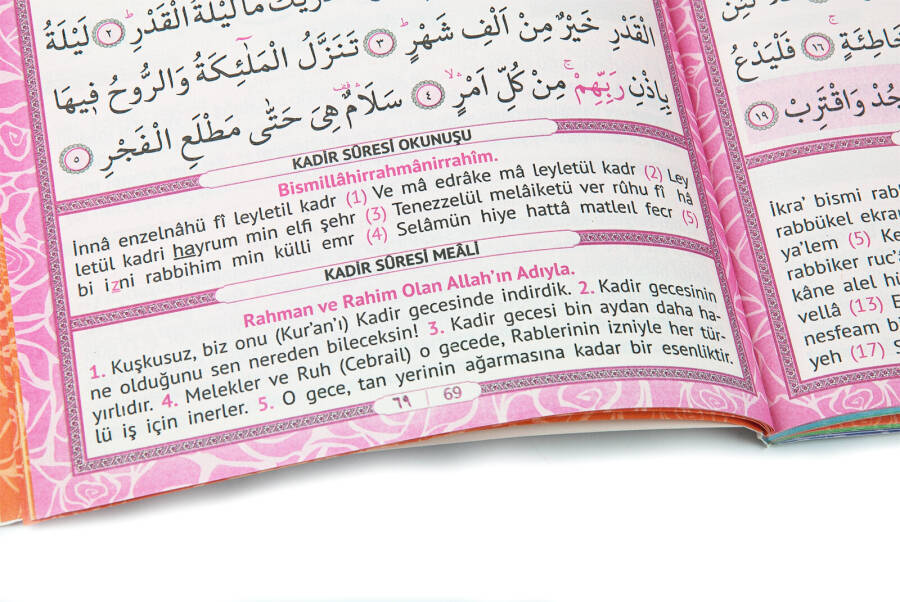 الْقَدْرِ ﴿٢﴾ لَيْلَةُ
الْقَدْرِ خَيْرٌ مِنْ اَلْفِ شَهْرٍ ﴿٣﴾ تَنَزَّلُ الْمَلٰٓئِكَةُ وَالرُّوحُ فٖيهَا
بِاِذْنِ رَبِّهِمْ مِنْ كُلِّ اَمْرٍ ﴿٤﴾ سَلَامٌ هِىَ حَتّٰى مَطْلَعِ الْفَجْرِ ﴿٥﴾
KADİR SÛRESİ OKUNUŞU
Bismillâhirrahmânirrahîm.
İnnâ enzelnâhü fî leyletil kadr (1) Ve mâ edrâke mâ leyletül kadr (2) Ley
letül kadri hayrum min elfi şehr (3) Tenezzelül melâiketü ver rûhu fî hâ
bi izni rabbihim min külli emr (4) Selâmün hiye hattâ matleıl fecr (5)
KADİR SÛRESİ MEÂLİ
Rahman ve Rahim Olan Allah’ın Adıyla.
1. Kuşkusuz, biz onu (Kur’an’ı) Kadir gecesinde indirdik. 2. Kadir gecesinin
ne olduğunu sen nereden bileceksin! 3. Kadir gecesi bin aydan daha ha-
yırlıdır. 4. Melekler ve Ruh (Cebrail) o gecede, Rablerinin izniyle her tür-
lü iş için inerler. 5. O gece, tan yerinin ağarmasına kadar bir esenliktir.
٦٩ | 69
خَاطِئَةٍ ﴿١٦﴾ فَلْيَدْعُ
وَاقْتَرِبْ ﴿١٩﴾
İkra’ bismi rabb
rabbükel ekra
ya’lem (5) Ke
rabbiker ruc’
kâne alel hü
vellâ (13) E
nesfeam bi
yeh (17) S